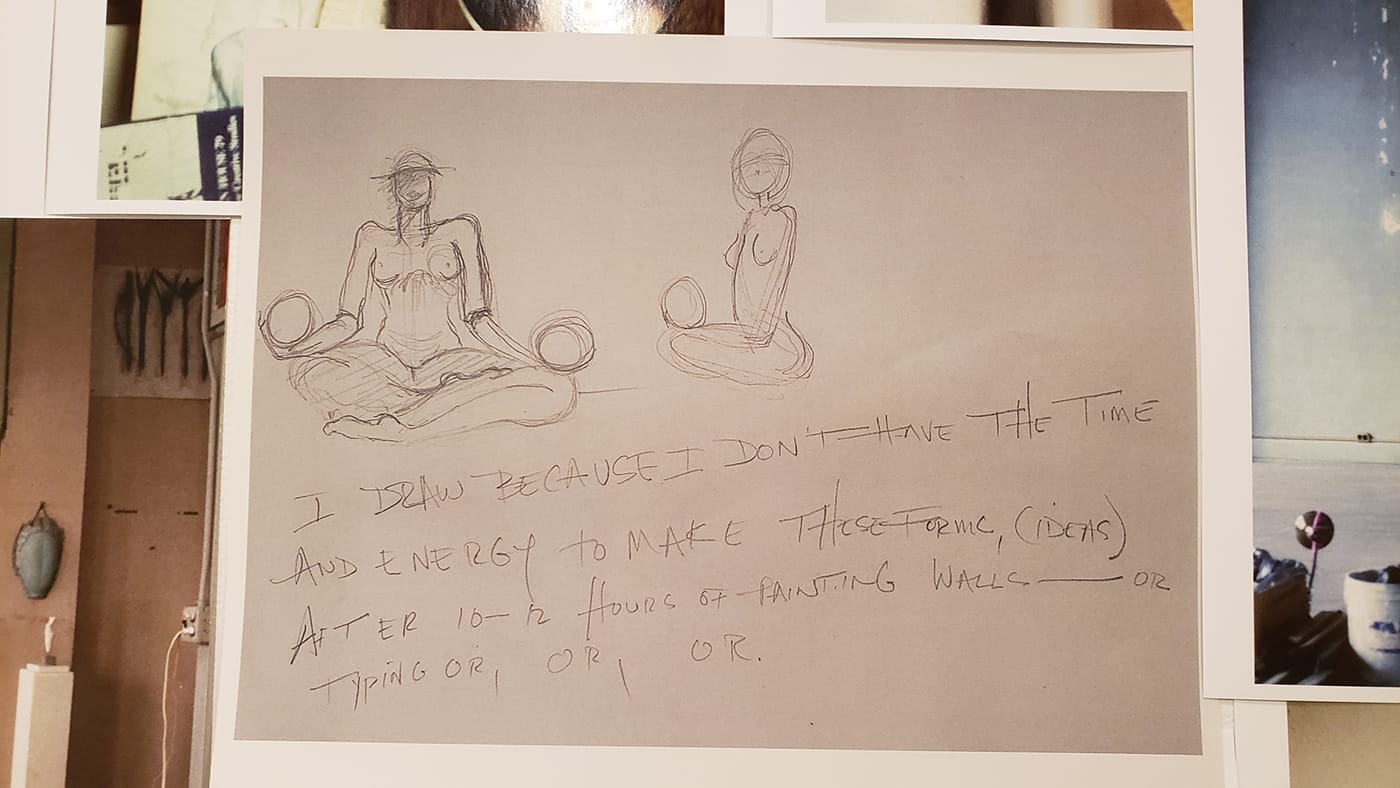 I DRAW BECAUSE I DON'T HAVE THE TIME
AND ENERGY to MAKE THESE FORMS, (iDEAS)
AFTER 10-12 HOURS OF PAINTING WALLS — OR
TYPING OR, OR, OR.